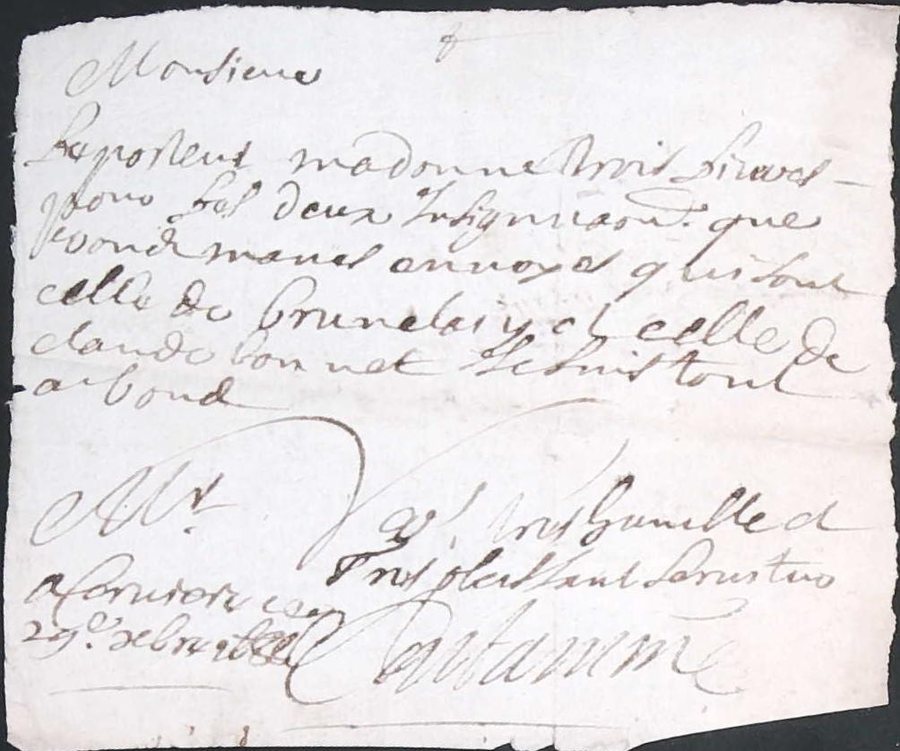 Monsieur
Le porteur ma donne trois livres
pour les deux Insignuaon. que
vous manes envoyes qui sont
celle de brunelas y et celle de
claude bonnet Je suis tout
a vous
Mr
Vostre tres humble et
Tres obeissant serviteur
a Cerviere ce
29e.
Contamine